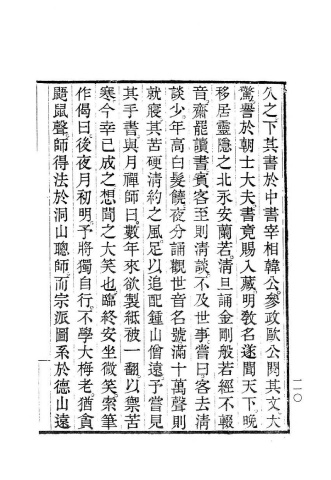 久之下其書於中書宰相韓公參政歐公閱其文大
驚譽於朝士大夫書竟賜入藏明敎名遂聞天下晚
移居靈隱之北永安蘭若淸旦誦金剛般若經不輟
音齋罷讀書賓客至則淸談不及世事嘗曰客去淸
談少年高白髮饒夜分誦觀世音名號滿十萬聲則
就寢其苦硬淸約之風足以追配鍾山僧遠予嘗見
其手書與月禪師曰數年來欲製紙被一翻以禦苦
寒今幸已成之想聞之大笑也臨終安坐微笑索筆
作偈曰後夜月初明予將獨自行不學大梅老猶貪
鼯鼠聲師得法於洞山聰師而宗派圖系於德山遠
一一〇